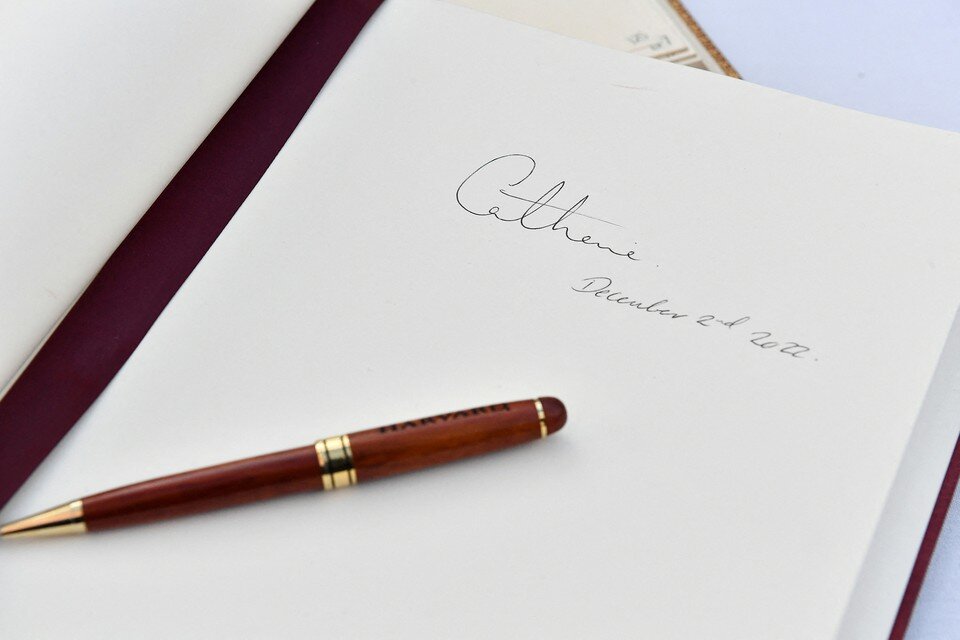 Catherine.
December 2nd 2022.
HARVARD